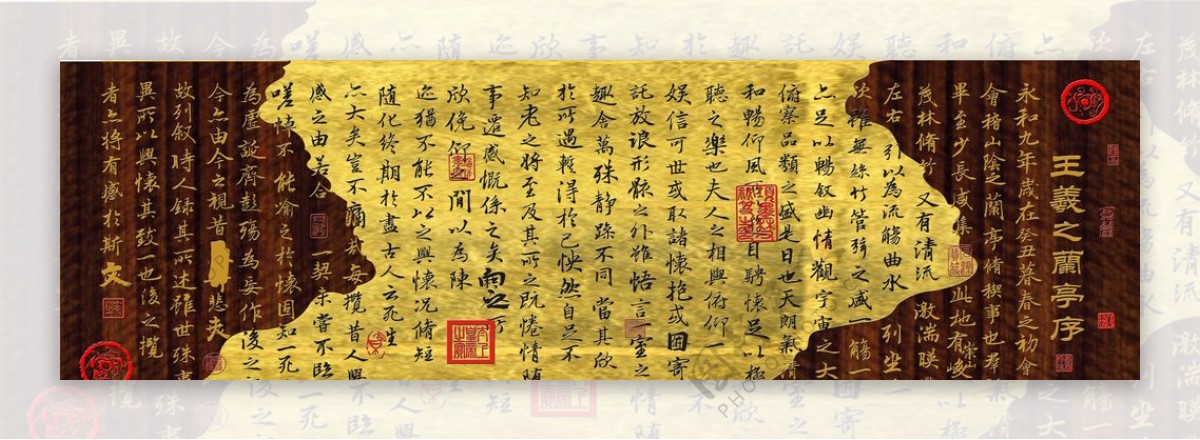 王羲之蘭亭序
永和九年歲在癸丑暮春之初會
會稽山陰之蘭亭脩稧事也羣
畢至少長咸集此地有崇山峻
茂林脩竹又有清流激湍暎
左右引以為流觴曲水列坐
次雖無絲竹管弦之盛一觴一
亦足以暢叙幽情觀宇宙之大
俯察品類之盛是日也天朗氣清
和暢仰風騁懷足以極
聽之樂也夫人之相與俯仰一
娛信可世或取諸懷抱或因寄
託放浪形骸之外雖悟言一室之
趣舍萬殊静躁不同當其欣
於所遇暫得於己快然自足不
知老之將至及其所之既惓情隨
事遷感慨係之矣向之所
欣俛仰間以為陳
迹猶不能不以之興懷況脩短
隨化終期於盡古人云死生
亦大矣豈不痛哉每攬昔人興
感之由若合一契未嘗不臨
嗟悼不能喻之於懷固知一死
為虛誕齊彭殤為妄作後之
今亦由今之視昔悲夫
故列叙時人錄其所述雖世殊事
異所以興懷其致一也後之攬
者亦將有感於斯文